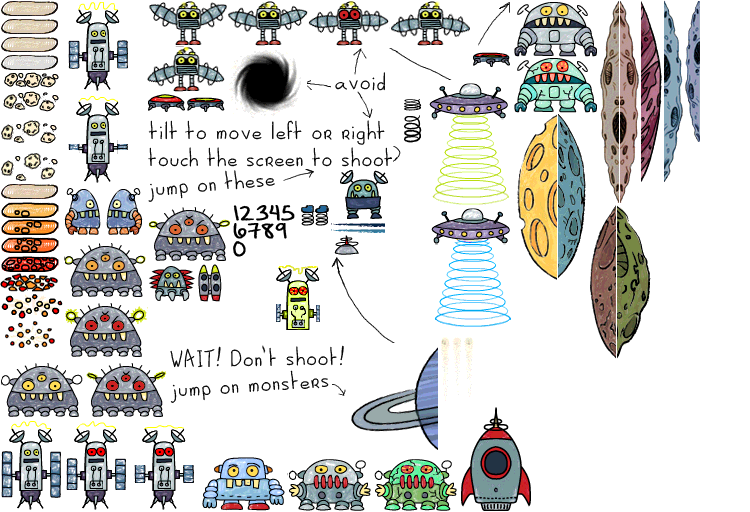 avoid
tilt to move left or right
touch the screen to shoot
jump on these
12345
6789
0
WAIT! Don't shoot!
jump on monsters